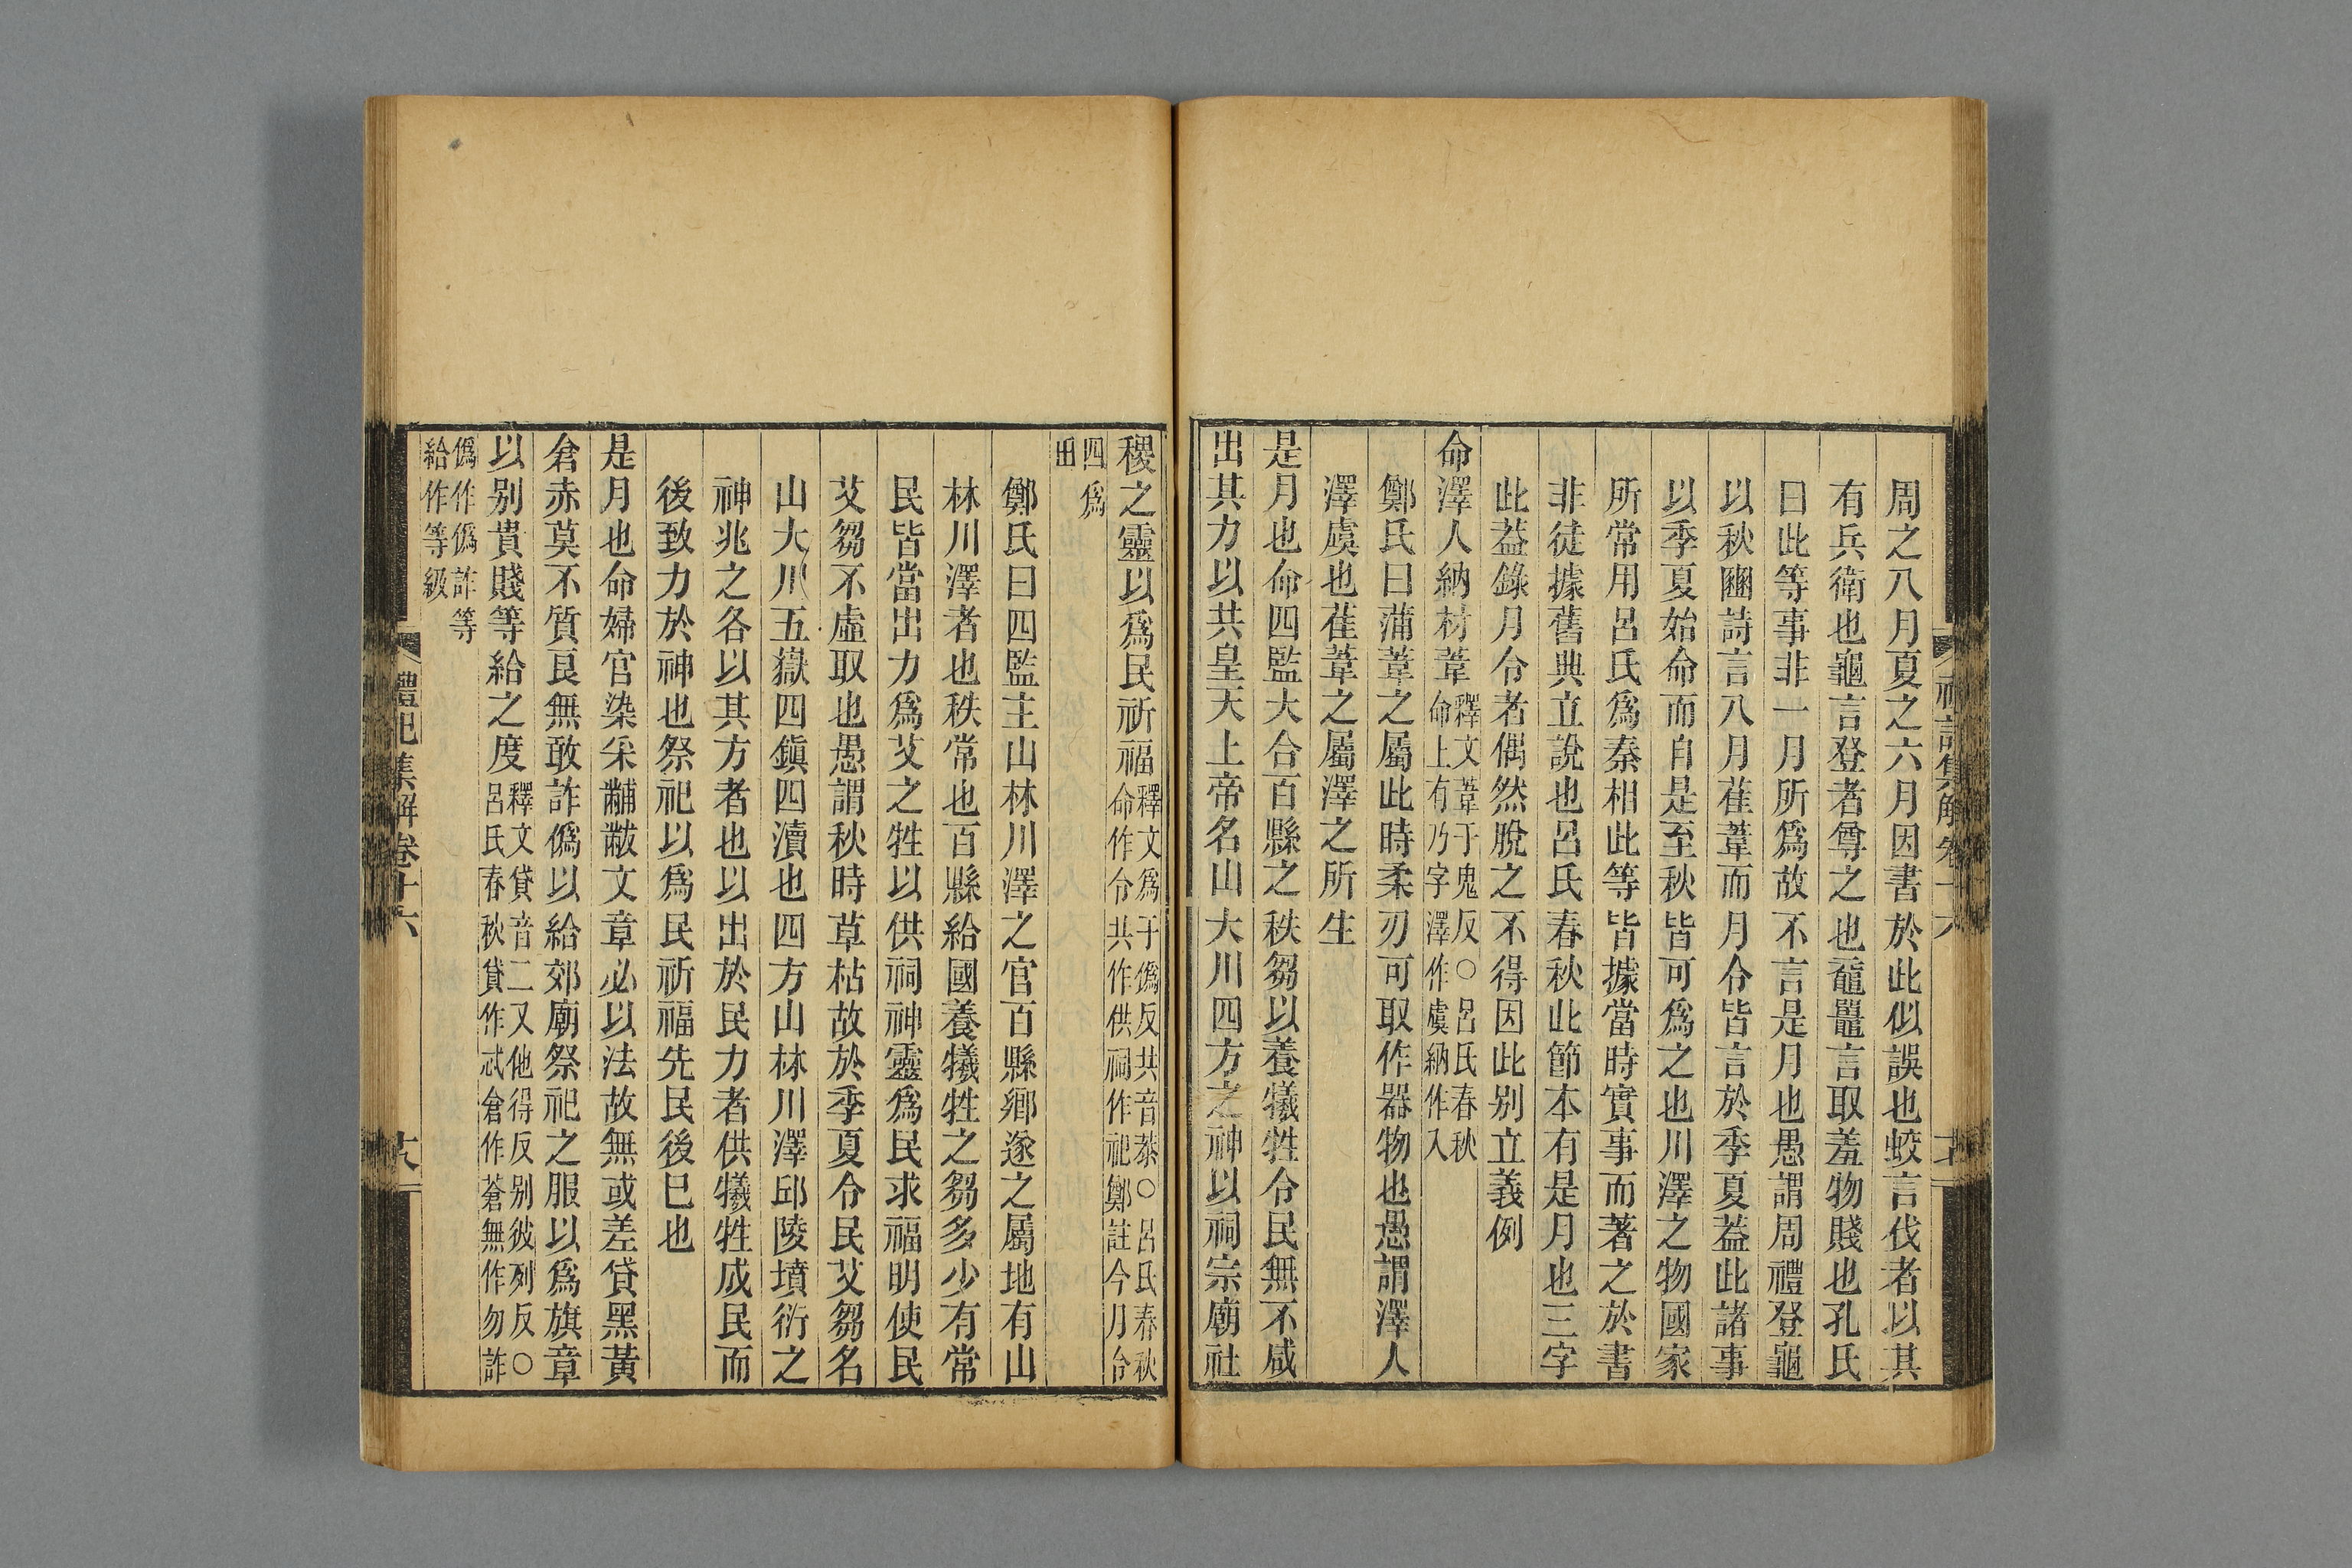 周之八月夏之六月因書於此似誤也蛟言伐者以其
有兵衛也龜言登者尊之也黿鼉言取羞物賤也孔氏
曰此等事非一月所爲故不言是月也愚謂周禮登龜
以秋豳詩言八月萑葦而月令皆言於季夏葢此諸事
以季夏始命而自是至秋皆可爲之也川澤之物國家
所常用呂氏爲秦相此等皆據當時實事而著之於書
非徒據舊典立說也呂氏春秋此節本有是月也三字
此葢錄月令者偶然脫之不得因此别立義例
命澤人納材葦釋文葦于鬼反○呂氏春秋
命上有乃字澤作虞納作入
鄭氏曰蒲葦之屬此時柔刃可取作器物也愚謂澤人
澤虞也萑葦之屬澤之所生
是月也命四監大合百縣之秩芻以養犧牲令民無不咸
出其力以共皇天上帝名山大川四方之神以祠宗廟社
稷之靈以爲民祈福釋文爲于僞反共音恭○呂氏春秋
命作令共作供祠作祀鄭註今月令
四爲
田
鄭氏曰四監主山林川澤之官百縣鄉遂之屬地有山
林川澤者也秩常也百縣給國養犧牲之芻多少有常
民皆當出力爲艾之牲以供祠神靈爲民求福明使民
艾芻不虛取也愚謂秋時草枯故於季夏令民艾芻名
山大川五嶽四鎮四瀆也四方山林川澤邱陵墳衍之
神兆之各以其方者也以出於民力者供犧牲成民而
後致力於神也祭祀以爲民祈福先民後已也
是月也命婦官染采黼黻文章必以法故無或差貸黑黃
倉赤莫不質良無敢詐僞以給郊廟祭祀之服以爲旗章
以别貴賤等給之度釋文貸音二又他得反别彼列反○
呂氏春秋貸作忒倉作蒼無作勿詐
僞作僞詐等
給作等級
禮記集解卷十六
十八